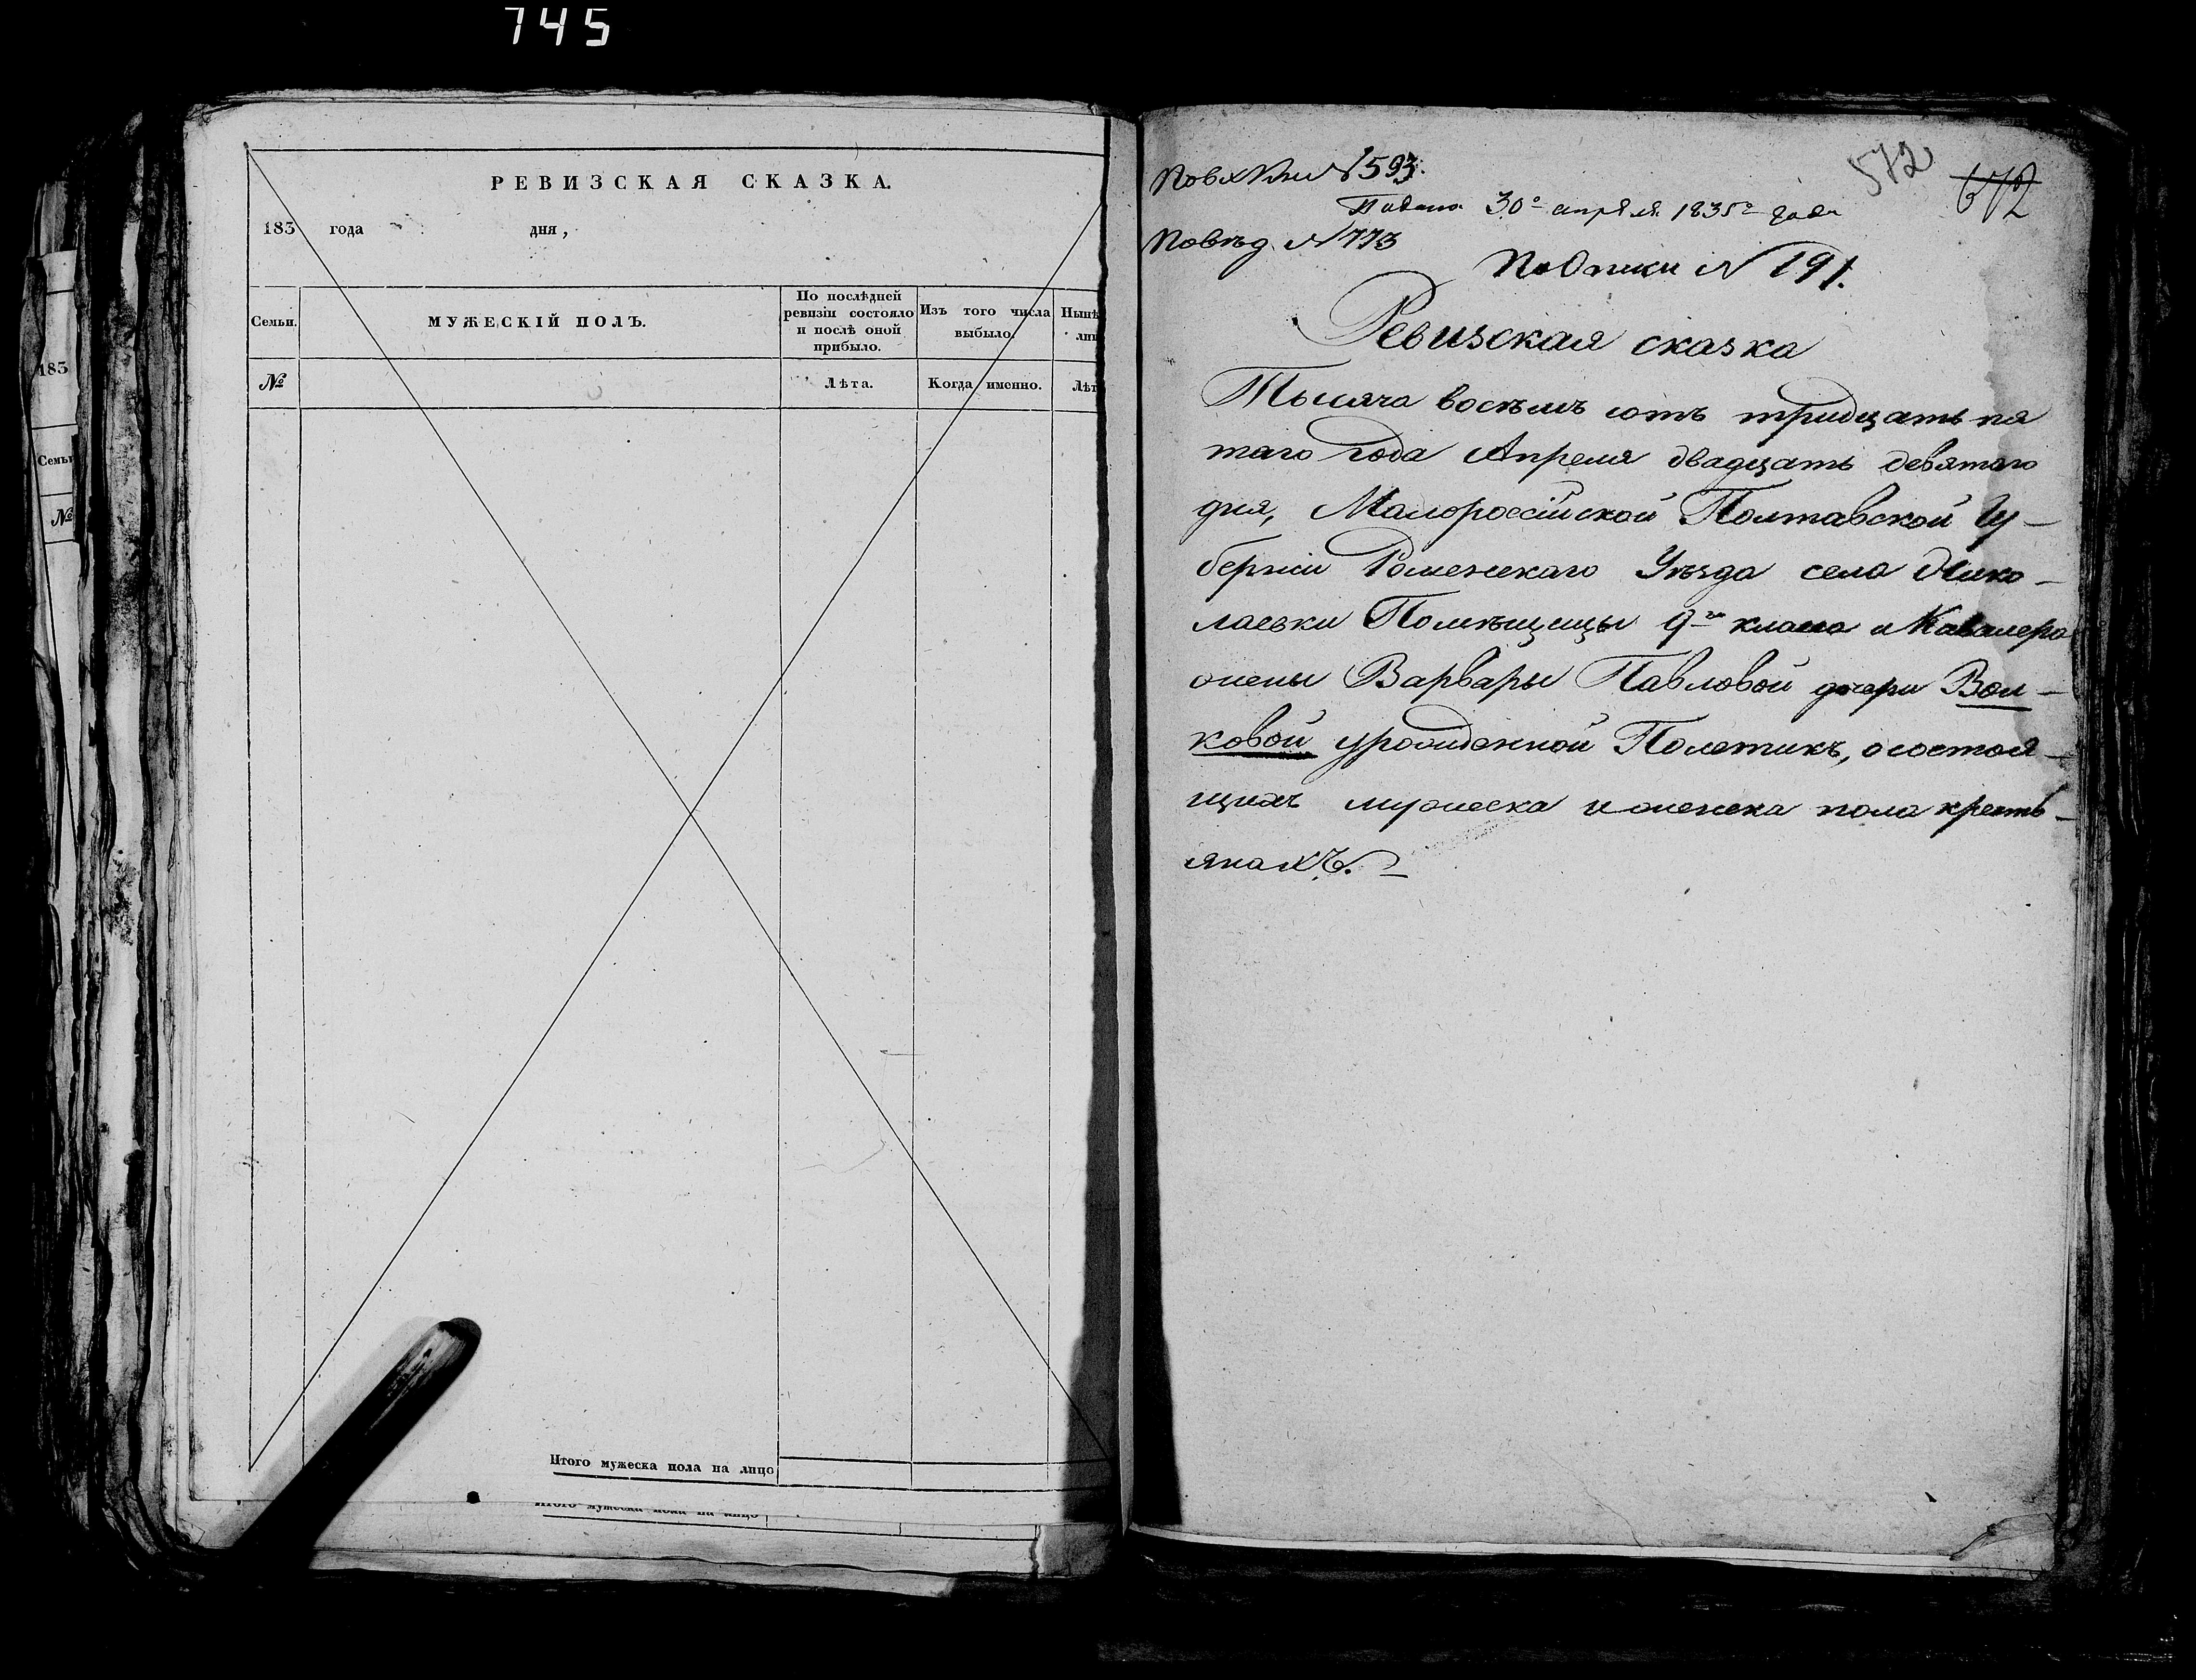 745
РЕВИЗСКАЯ СКАЗКА.
183 года дня,
Семьи.
МУЖЕСКІЙ ПОЛЪ.
По послѣдней ревизіи состояло и послѣ оной прибыло.
Изъ того числа выбыло.
Нынѣ
лиц
№
Лѣта.
Когда именно.
Лѣт
Итого мужеска пола на лицо
Итого мужеска пола на лицо
183
Семьи
№
572
672
По вх Кни № 593.
Подана 30го апрѣля 1835го года
По вѣд. № 773
По Описи № 191.
Ревизская сказка
Тысяча восѣмъ сотъ тридцать пя
таго года Апреля двадцать девятаго
дня, Малороссійской Полтавской Гу-
берніи Роменскаго Уѣзда села Нико-
лаевки Помѣщицы 9го класса и Кавалера
жены Варвары Павловой дочери Вол-
ковой урожденной Полетикъ, о состоя-
щихъ мужеска и женска пола кресть-
янахъ.